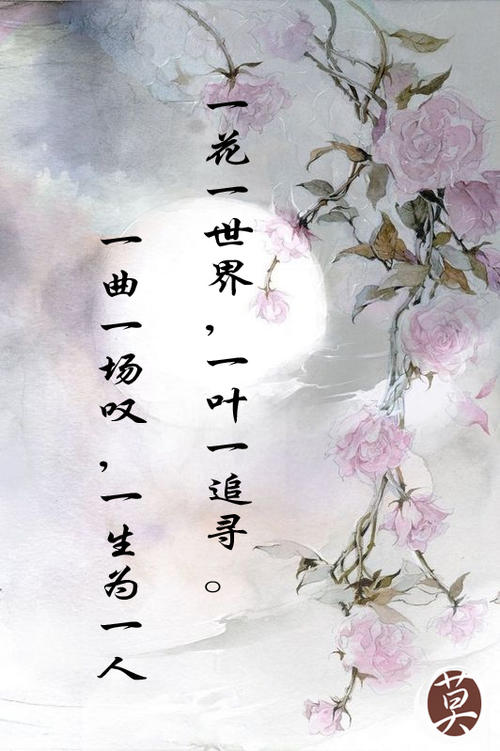 一花一世界，一叶一追寻。
一曲一场叹，一生为一人
莫